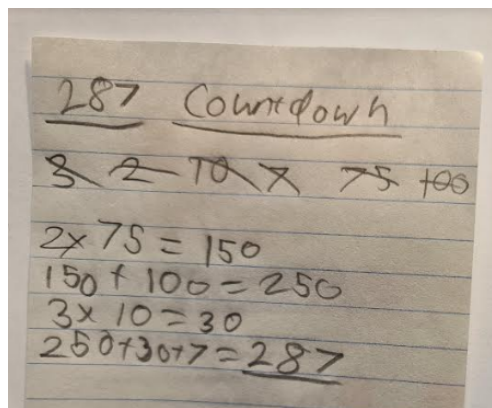 287 Countdown
3 2 10 7 75 100
2x 75 = 150
150 + 100 = 250
3x 10 = 30
250+30+7 = 287